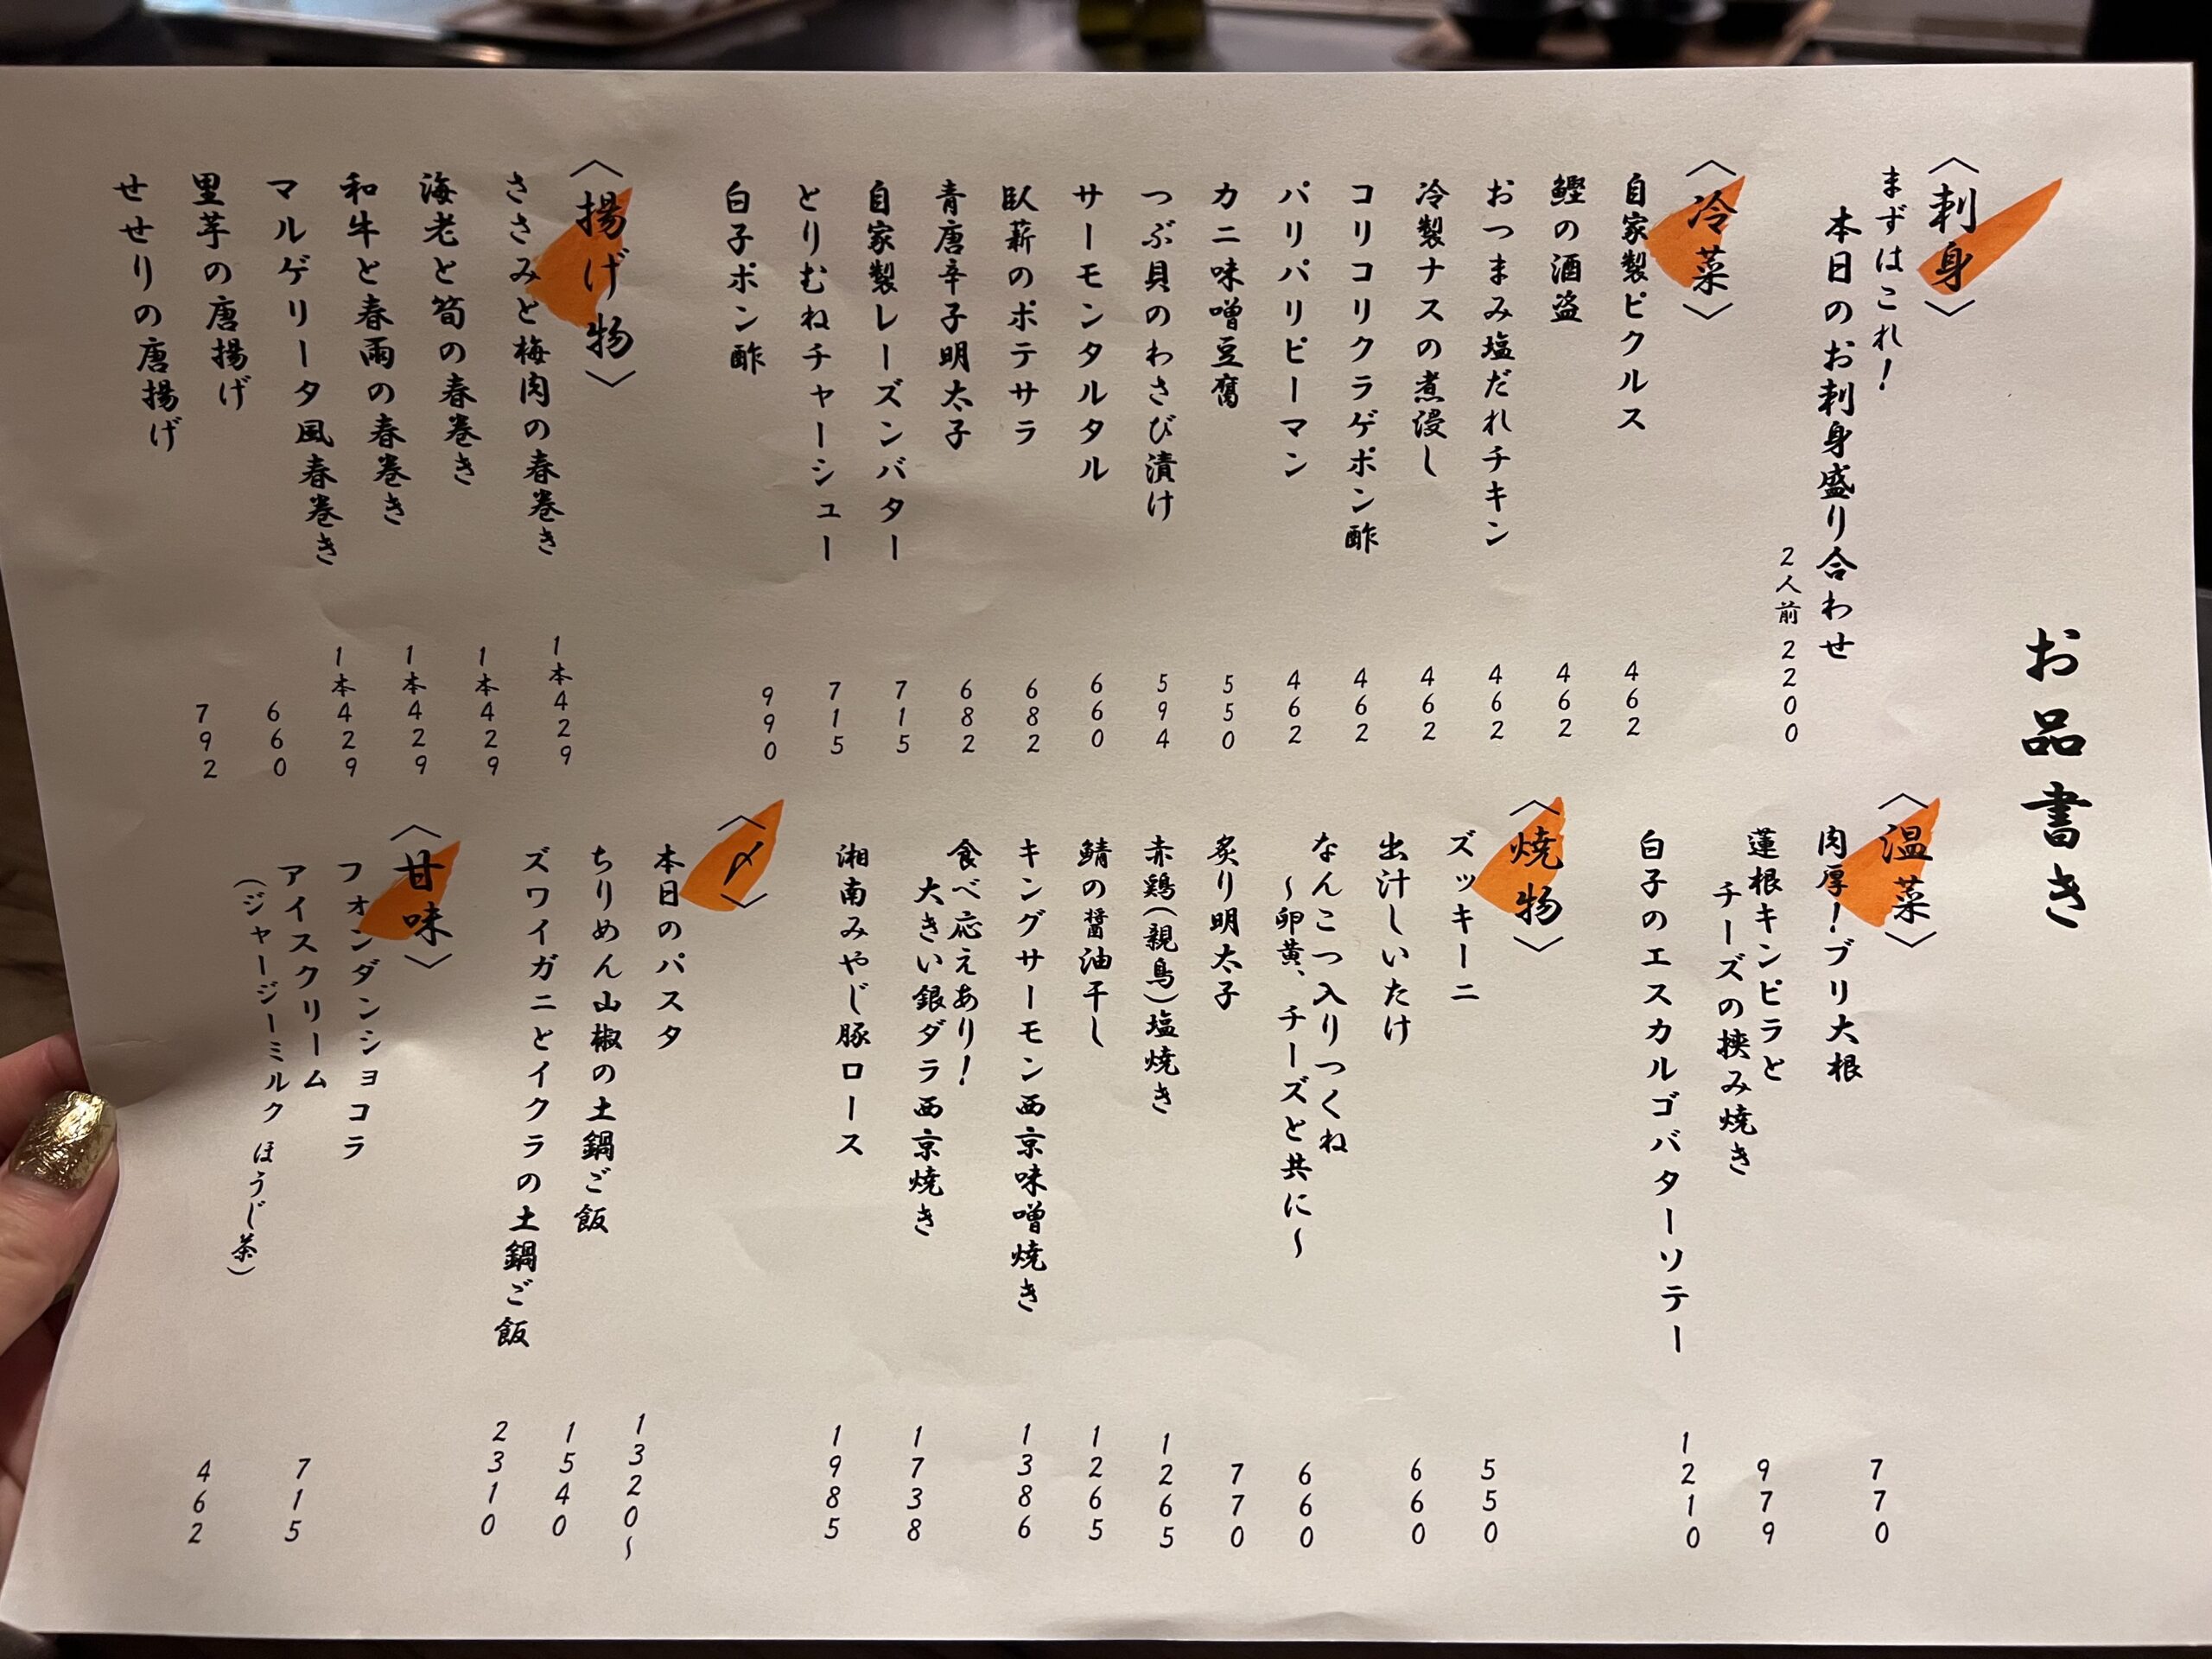 お品書き
〈刺身〉
まずはこれ！
本日のお刺身盛り合わせ
2人前 2200
〈冷菜〉
自家製ピクルス 462
鰹の酒盗 462
おつまみ塩だれチキン 462
冷製ナスの煮浸し 462
コリコリクラゲポン酢 462
パリパリピーマン 462
カニ味噌豆腐 550
つぶ貝のわさび漬け 594
サーモンタルタル 660
臥薪のポテサラ 682
青唐辛子明太子 682
自家製レーズンバター 715
とりむねチャーシュー 715
白子ポン酢 990
〈揚げ物〉
ささみと梅肉の春巻き 1本429
海老と筍の春巻き 1本429
和牛と春雨の春巻き 1本429
マルゲリータ風春巻き 1本429
里芋の唐揚げ 660
せせりの唐揚げ 792
〈温菜〉
肉厚！ブリ大根 770
蓮根キンピラと
チーズの挟み焼き 979
白子のエスカルゴバターソテー 1210
〈焼物〉
ズッキーニ 550
出汁しいたけ 660
なんこつ入りつくね
～卵黄、チーズと共に～ 660
炙り明太子 770
赤鶏(親鳥)塩焼き 1265
鯖の醤油干し 1265
キングサーモン西京味噌焼き 1386
食べ応えあり！
大きい銀ダラ西京焼き 1738
湘南みやじ豚ロース 1985
〈〆〉
本日のパスタ 1320～
ちりめん山椒の土鍋ご飯 1540
ズワイガニとイクラの土鍋ご飯 2310
〈甘味〉
フォンダンショコラ 715
アイスクリーム
(ジャージーミルク ほうじ茶) 462